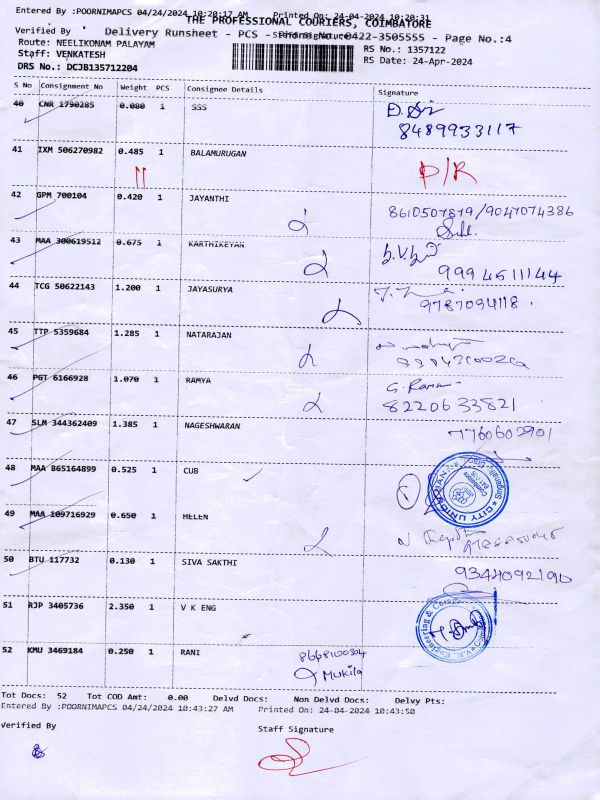 Entered By :POORNIMAPCS 04/24/2024 10:20:17 AM Printed On: 24-04-2024 10:20:31
THE PROFESSIONAL COURIERS, COIMBATORE
Verified By Staff Signature
Delivery Runsheet - PCS - :0422-3505555 - Page No.:4
Route: NEELIKONAM PALAYAM RS No.: 1357122
Staff: VENKATESH RS Date: 24-Apr-2024
DRS No.: DCJB135712204
S No Consignment No Weight PCS Consignee Details Signature
40 CNR 1790285 0.080 1 SSS
8489933117
41 IXM 506270982 0.485 1 BALAMURUGAN D/R
42 GPM 700104 0.420 1 JAYANTHI 8610507879/9047074386
43 MAA 300619512 0.675 1 KARTHIKEYAN
9994511144
44 TCG 50622143 1.200 1 JAYASURYA
9787094118
45 TTP 5359684 1.285 1 NATARAJAN
46 PGT 6166928 1.070 1 RAMYA
8220633821
47 SLM 344362409 1.385 1 NAGESHWARAN 7760602901
48 MAA 865164899 0.525 1 CUB CITY UNION BANK
49 MAA 109716929 0.650 1 HELEN
50 BTU 117732 0.130 1 SIVA SAKTHI
51 RJP 3405736 2.350 1 V K ENG
52 KMU 3469184 0.250 1 RANI
Mukila
Tot Docs: 52 Tot COD Amt: 0.00 Delvd Docs: Non Delvd Docs: Delvy Pts:
Entered By :POORNIMAPCS 04/24/2024 10:43:27 AM Printed On: 24-04-2024 10:43:50
Verified By Staff Signature